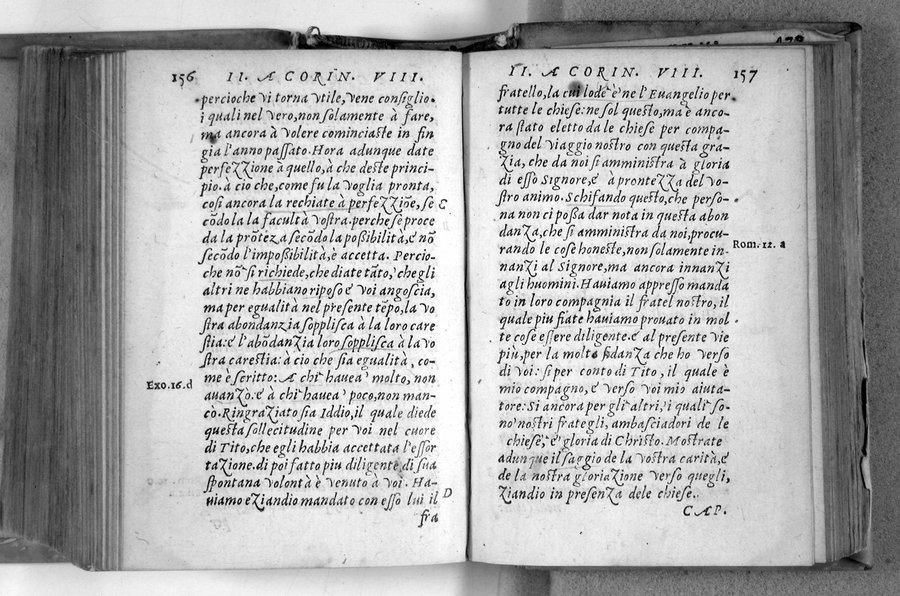 156 II. A CORIN. VIII.
percioche vi torna vtile, vene consiglio.
i quali nel vero, non solamente à fare,
ma ancora à volere cominciaste in fin
gia l'anno passato. Hora adunque date
perfezzione à quello, à che deste princi-
pio. à cio che, come fu la voglia pronta,
cosi ancora la rechiate à perfezziōe, se
cōdo la la facultà vostra. perche se proce
da la prōtezza secōdo la possibilità, e nō
secōdo l'impossibilità, è accetta. Percio-
che nō si richiede, che diate tāto, che gli
altri ne habbiano riposo e voi angoscia,
ma per egualità nel presente tēpo, la vo
stra abondanzia sopplisca à la loro care
stia: e l'abōdanzia loro sopplisca à la vo
stra carestia: à cio che sia egualità, co-
me è scritto: A chi hauea molto, non
auanzò: e à chi hauea poco, non man-
cò. Ringraziato sia Iddio, il quale diede
questa sollecitudine per voi nel cuore
di Tito, che egli habbia accettata l'essor
tazione. di poi fatto piu diligente, di sua
spontana volontà è venuto à voi. Ha-
uiamo eziandio mandato con esso lui il
fra
C
Exo.16.d
D
II. A CORIN. VIII. 157
fratello, la cui lode è ne l'Euangelio per
tutte le chiese: ne sol questo, ma è anco-
ra stato eletto da le chiese per compa-
gno del viaggio nostro con questa gra-
zia, che da noi si amministra à gloria
di esso Signore, e à prontezza del vo-
stro animo. Schifando questo, che perso-
na non ci possa dar nota in questa abon
danza, che si amministra da noi, procu-
rando le cose honeste, non solamente in-
nanzi al Signore, ma ancora innanzi
agli huomini. Hauiamo appresso manda
to in loro compagnia il fratel nostro, il
quale piu fiate hauiamo prouato in mol
te cose essere diligente. e al presente vie
più, per la molta fidanza che ho verso
di voi: si per conto di Tito, il quale è
mio compagno, e verso voi mio aiuta-
tore: Si ancora per gli altri, i quali so-
no nostri frategli, ambasciadori de le
chiese, e gloria di Christo. Mostrate
adunque il saggio de la vostra carità, e
de la nostra gloriazione verso quegli,
ziandio in presenza dele chiese.
CAP.
Rom. 12. a